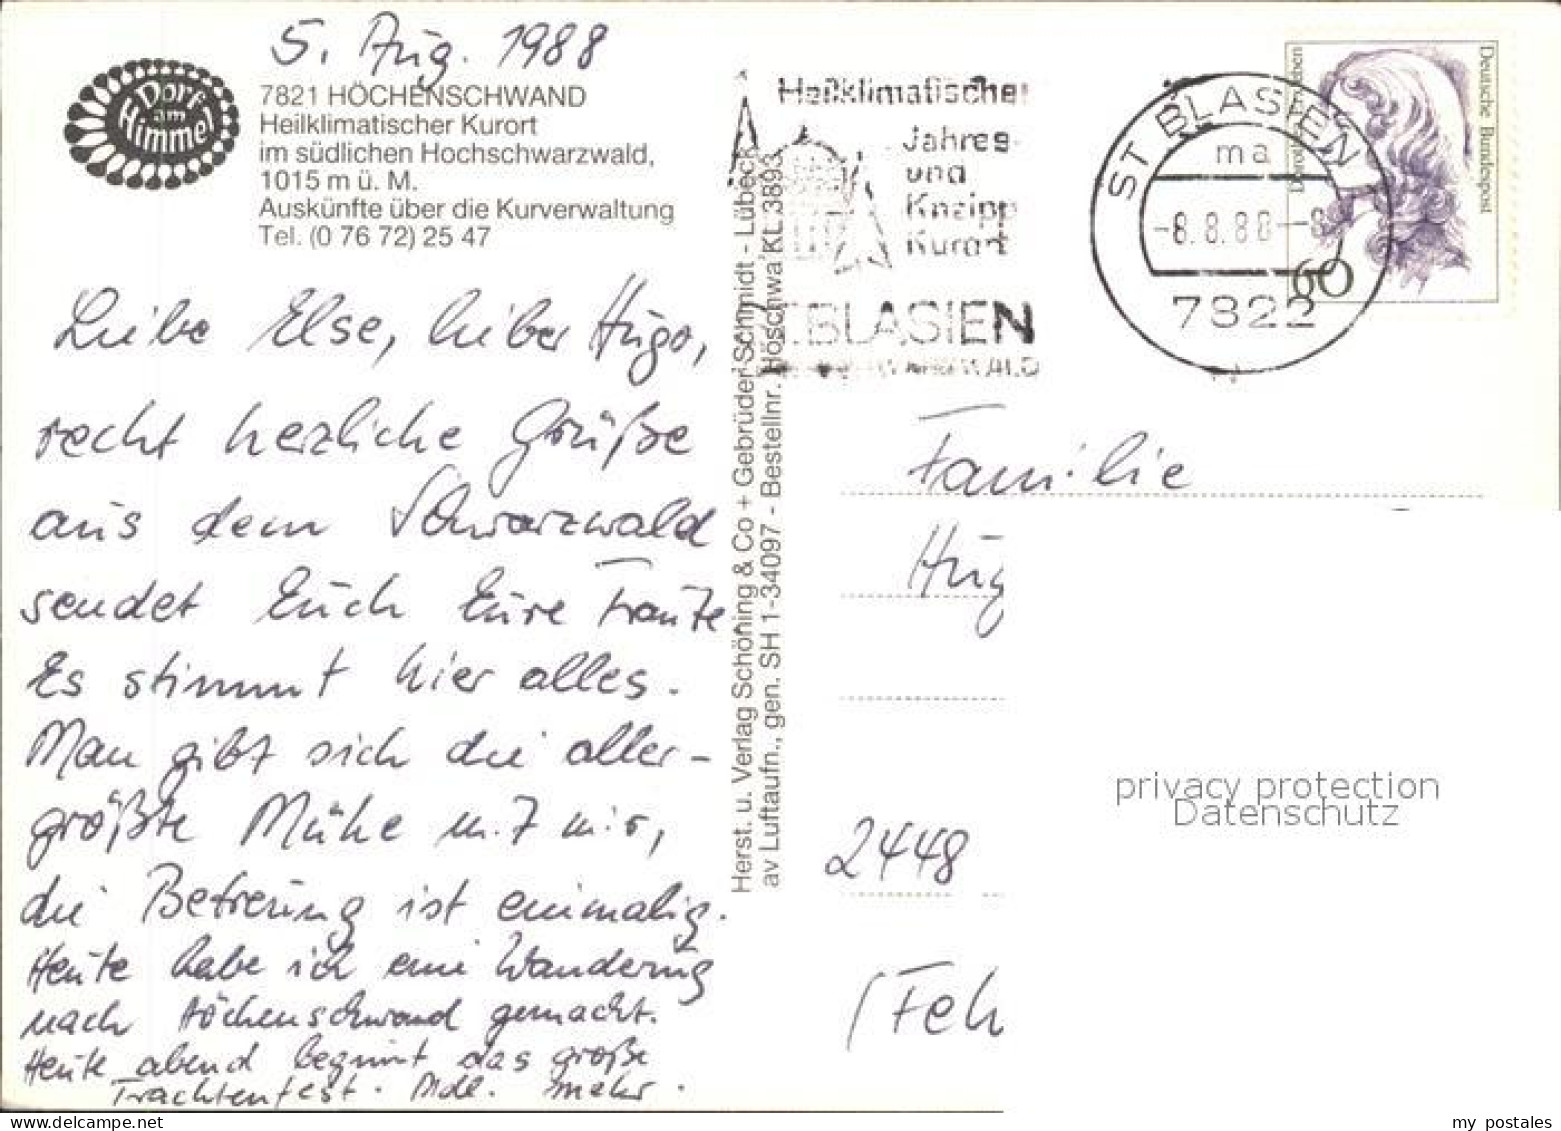 5. Aug. 1988
Dorf
am
Himmel
7821 HÖCHENSCHWAND
Heilklimatischer Kurort
im südlichen Hochschwarzwald,
1015 m ü. M.
Auskünfte über die Kurverwaltung
Tel. (0 76 72) 25 47
Liebe Else, lieber Hugo,
recht herzliche Grüße
aus dem Schwarzwald
sendet Euch Eure Traute.
Es stimmt hier alles.
Man gibt sich die aller-
größte Mühe mit mir,
die Betreuung ist einmalig.
Heute habe ich eine Wanderung
nach Höchenschwand gemacht.
Heute abend beginnt das große
Trachtenfest. Mdl. mehr.
Herst. u. Verlag Schöning & Co + Gebrüder Schmidt - Lübeck
av Luftaufn., gen. SH 1-34097 - Bestellnr. Höschwa KL 3893
Heilklimatischer
Jahres-
und
Kneipp
Kurort
ST.BLASIEN
ST BLASIEN
ma
-8.8.88-8
7822
Deutsche Bundespost
60
Familie
Hug
2448
(Feh
privacy protection
Datenschutz
my postales